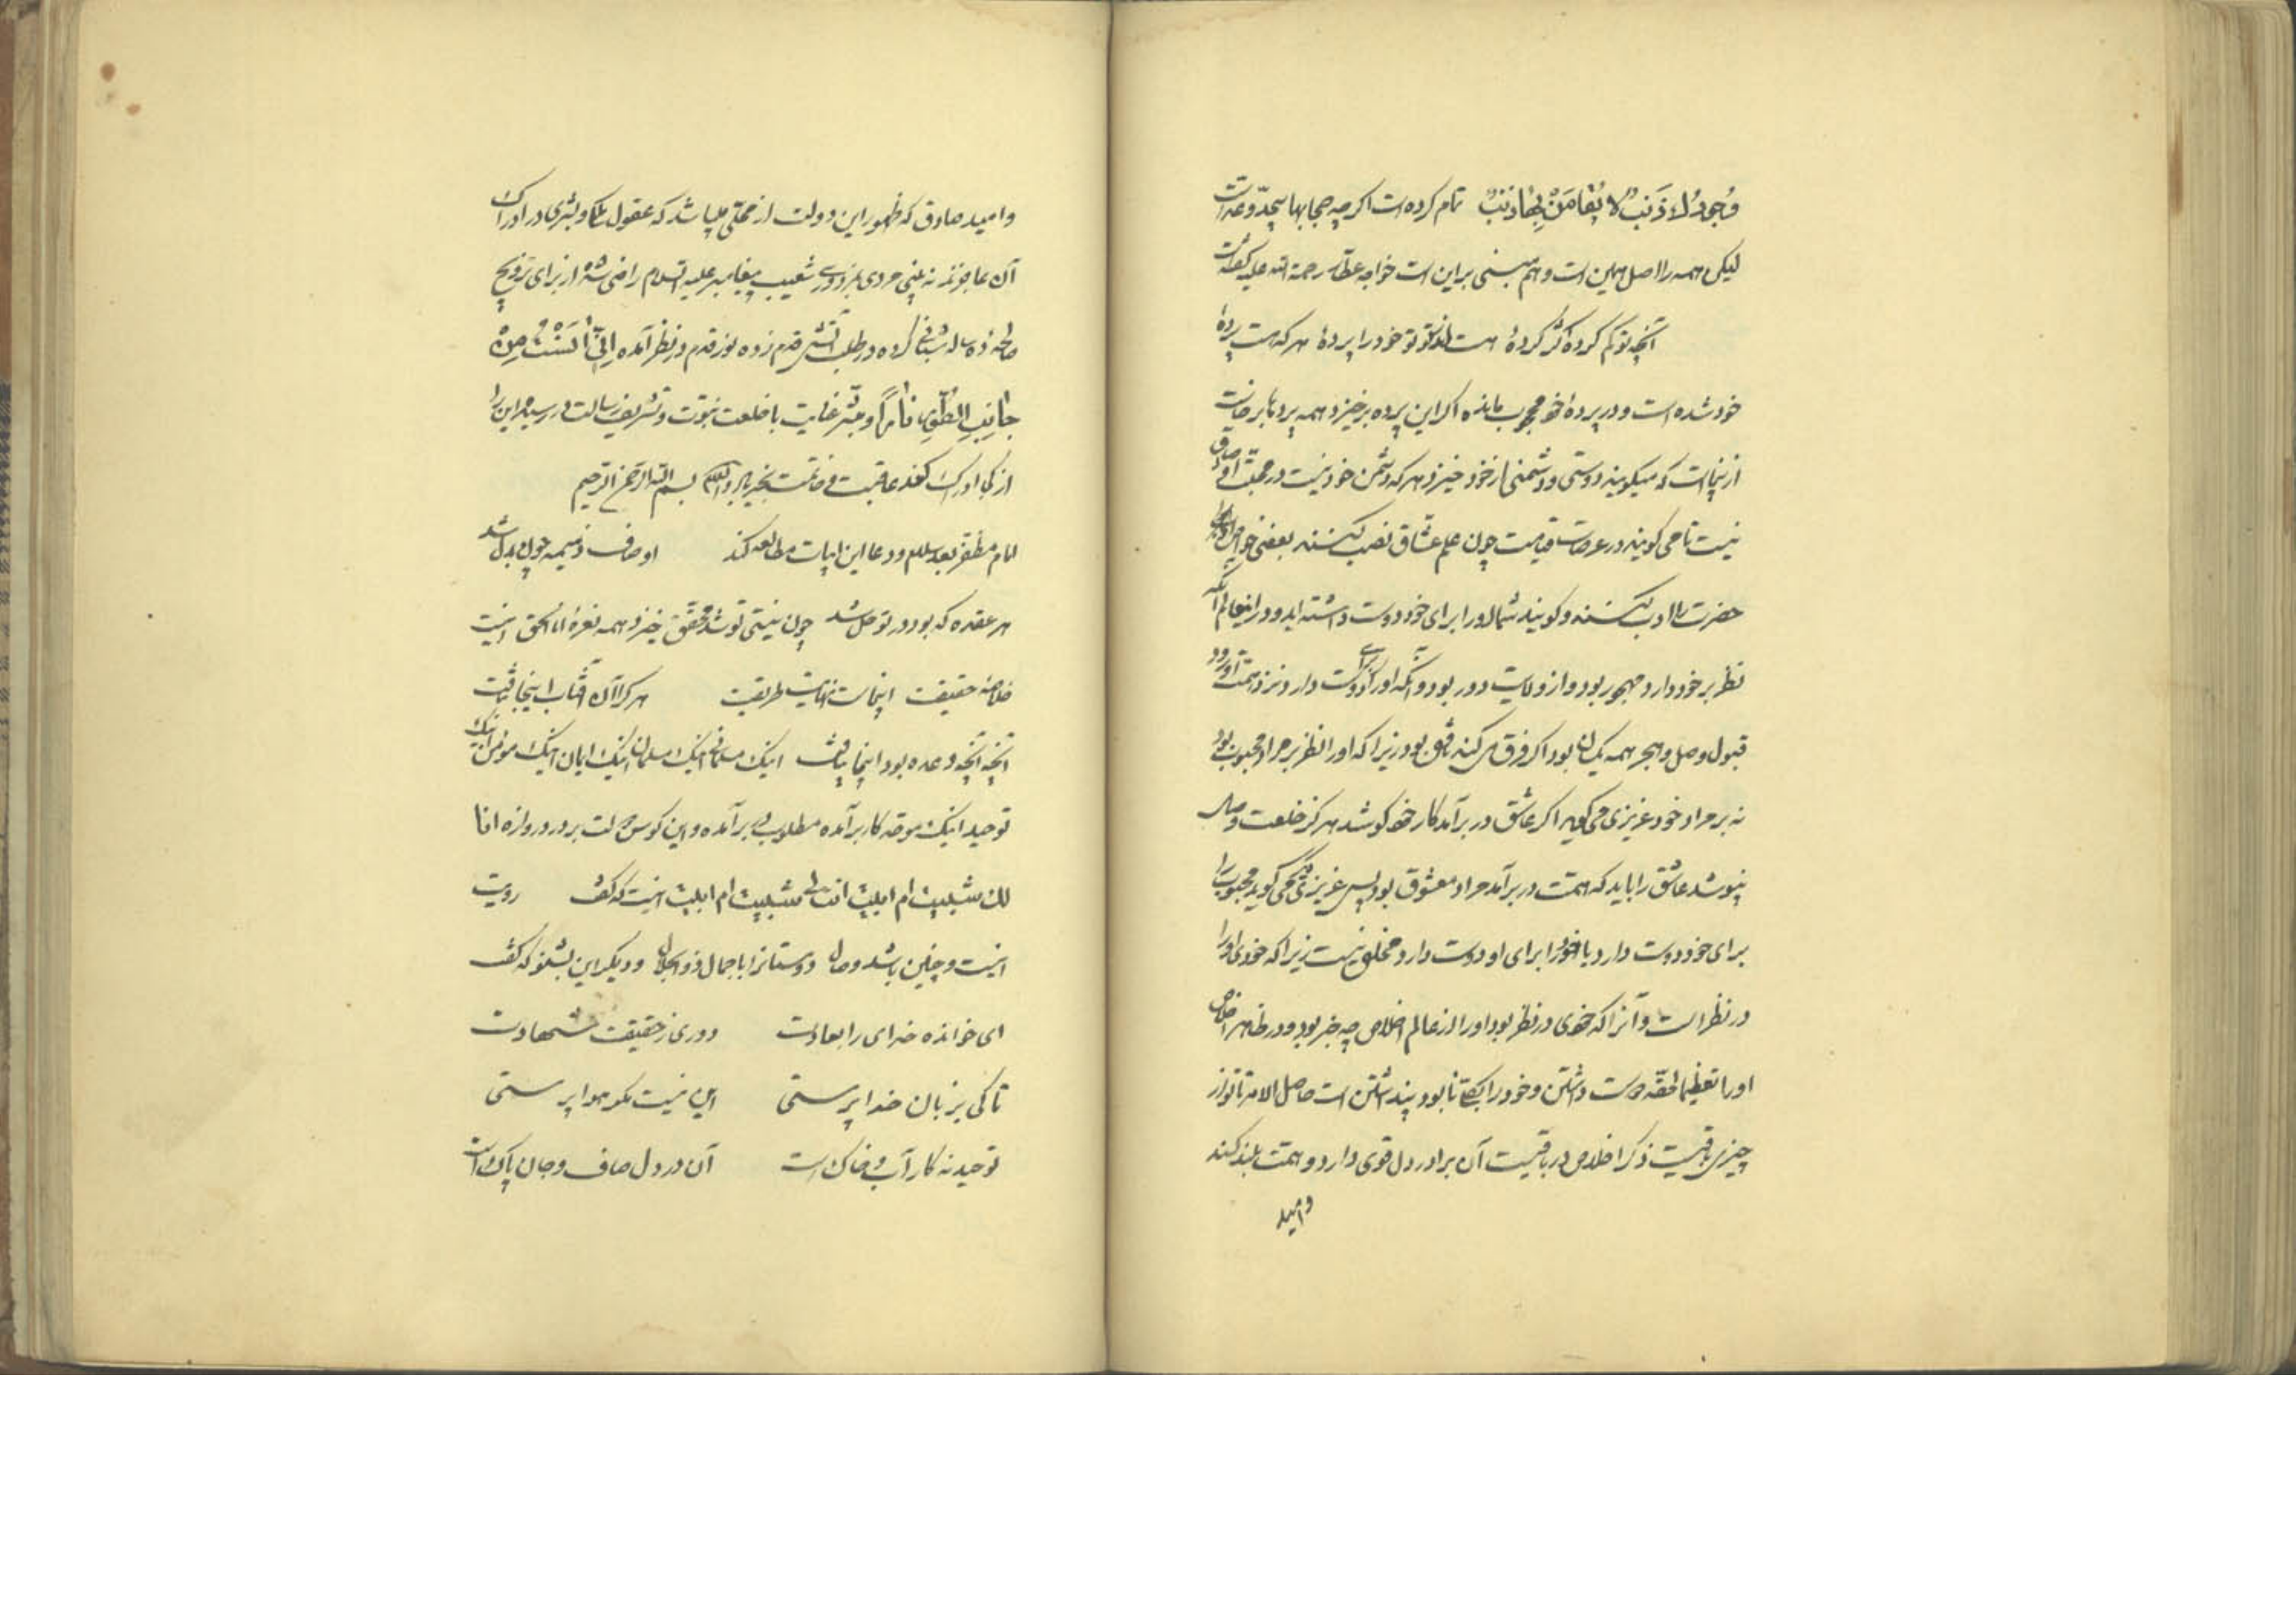 وُجُودُكَ ذَنْبٌ لَا يُقَاسُ بِهَا ذَنْبٌ تمام کرده است اکرچه حجابها بیحد و عد است
لیکن همه را اصل همین است و هم مبنی براین است خواجه عطار رحمة الله علیه کفته است
آنچه تو کم کردهٔ کر کردهٔ هست آن تو تو خود را پردهٔ هر که هست پردهٔ
خود شده است و در پرده خود محجوب مانده اکر این پرده برخیزد همه پردها برخاست
ازینجاست که میکویند دوستی و دشمنی از خود خیزد هر که دشمن خود نیست در محبت او صادق
نیست تا می کویند در عرصات قیامت چون علم عشاق نصب کنند بعضی خواص
حضرت را ادب کنند و کویند شما او را برای خود دوست داشته اید و در اینعالم آنکه
نظر بر خود دارد مهجور بود و از ولایت دور بود و آنکه او را برای او دوست دارد نزد همت او رد و
قبول وصل و هجر همه یکسان بود اکر فرق کند ناقص بود زیرا که او را نظر بر مراد محبوب بود
نه بر مراد خود عزیزی می کوید اکر عاشق در برآمد کار خود کوشد هرکز خلعت وصال
نپوشد عاشق را باید که همت در برآمد مراد معشوق بود پس عزیزی می کوید محبوب را
برای خود دوست دارد یا خود را برای او دوست دارد مخلص نیست زیرا که خودی او را
در نظر است و آنرا که خودی در نظر بود او را از عالم اخلاص چه خبر بود و در ظاهر اخلاص
او را تعظیما لحقه دوست داشتن و خود را بکلی نابود پنداشتن است حاصل الامر تا تو از
چیزی باقیست ذکر اخلاص در باقیست آن برادر دل قوی دارد و همت بلند کند
و امید
و امید صادق که ظهور این دولت از محلی باشد که عقول ملکی و بشری در ادراک
آن عاجزند نه بینی مردی بمزدوری شعیب پیغامبر علیه السلام راضی شده از برای ترویج
صالحه ده ساله شبانی کرده در طلب آتش قدم زده نور قدم در نظر آمده اِنِّی آنَسْتُ مِنْ
جَانِبِ الطُّورِ نَارًا و مبشر غایت با خلعت نبوت و تشریف رسالت در رسیده این را
از کجا ادراک کند عاقبت و خاتمت بخیر باد والسلام بسم الله الرحمن الرحیم
امام مظفر بعد سلام و دعا این ابیات مطالعه کند اوصاف ذمیمه چون بدل شد
هر عقده که بود در تو حل شد چون نیستی تو شد محقق خیزد همه نعرهٔ انا الحق اینست
خلاصه حقیقت اینجاست نهایت طریقت هر کرا آن آفتاب اینجا بتافت
آنچه آنجا وعده بود اینجا بیافت اینک مسلمانی اینک مسلمان اینک ایمان اینک مؤمن اینک
توحید اینک موحد کار برآمده مطلوب برآمده و این کوس دولت بر در دروازه انا
لك شئت ام ابیت انت لی شئت ام ابیت اینست که کفت رویت
اینست و چنین باشد وصال دوستانرا با جمال ذوالجلال و دیکر این بشنو که کفت
ای خوانده خدای را بعادت دوری ز حقیقت شهادت
تا کی بزبان خدا پرستی این نیست مکر هوا پرستی
توحید نه کار آب و خاک است آن در دل صاف و جان پاک است